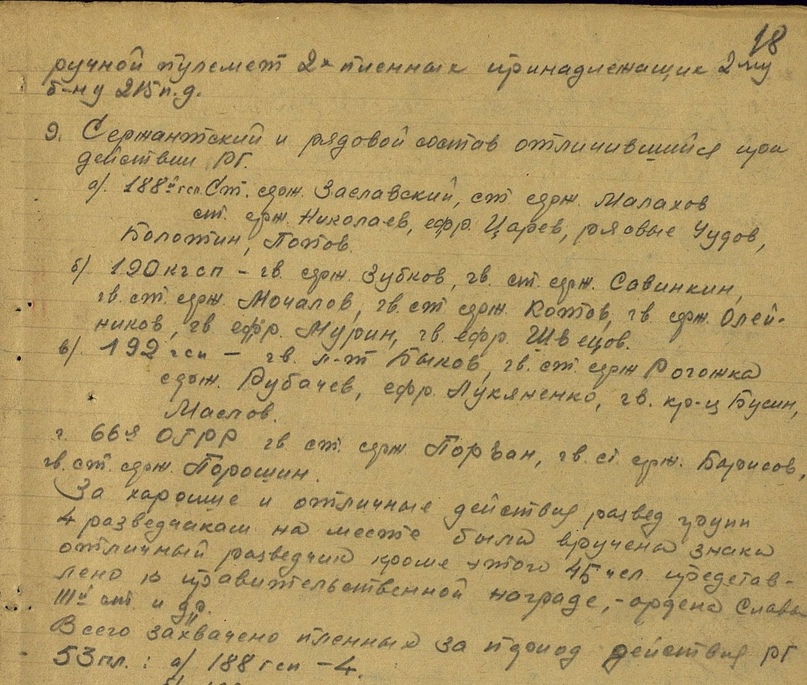 18
ручной пулемет 2х пленных принадлежащих 2му
б-ну 215 п.д.
9. Сержантский и рядовой состав отличившийся при
действии РГ.
а/. 188й гсп Ст. серж. Заславский, ст серж. Малахов
ст. серж. Николаев, ефр. Царев, рядовые Чудов,
Болотин, Потов.
б/ 190 кгсп – гв. серж. Зубков, гв. ст. серж. Савинкин,
гв. ст. серж. Мочалов, гв. ст серж. Котов, гв. серж. Олей-
ников, гв. ефр. Мурин, гв. ефр. Швецов.
в/ 192 гсп – гв. л-т Быков, гв. ст. серж Рогожка
серж. Рубачев, ефр. Лукяненко, гв. кр-ц Бусин,
Маслов.
г. 66я ОГРР гв ст. серж. Порван, гв. ст. серж. Барисов,
гв. ст. серж. Порошин.
За хорошие и отличные действия развед групп
4 разведчикам на месте были вручена знака
отличный разведчик кроме этого 45 чел. представ-
лено к правительственной награде, – ордена Славы
IIIй ст. и др.
Всего захвачено пленных за период действия РГ
53 пл.: а/ 188 гсп – 4.